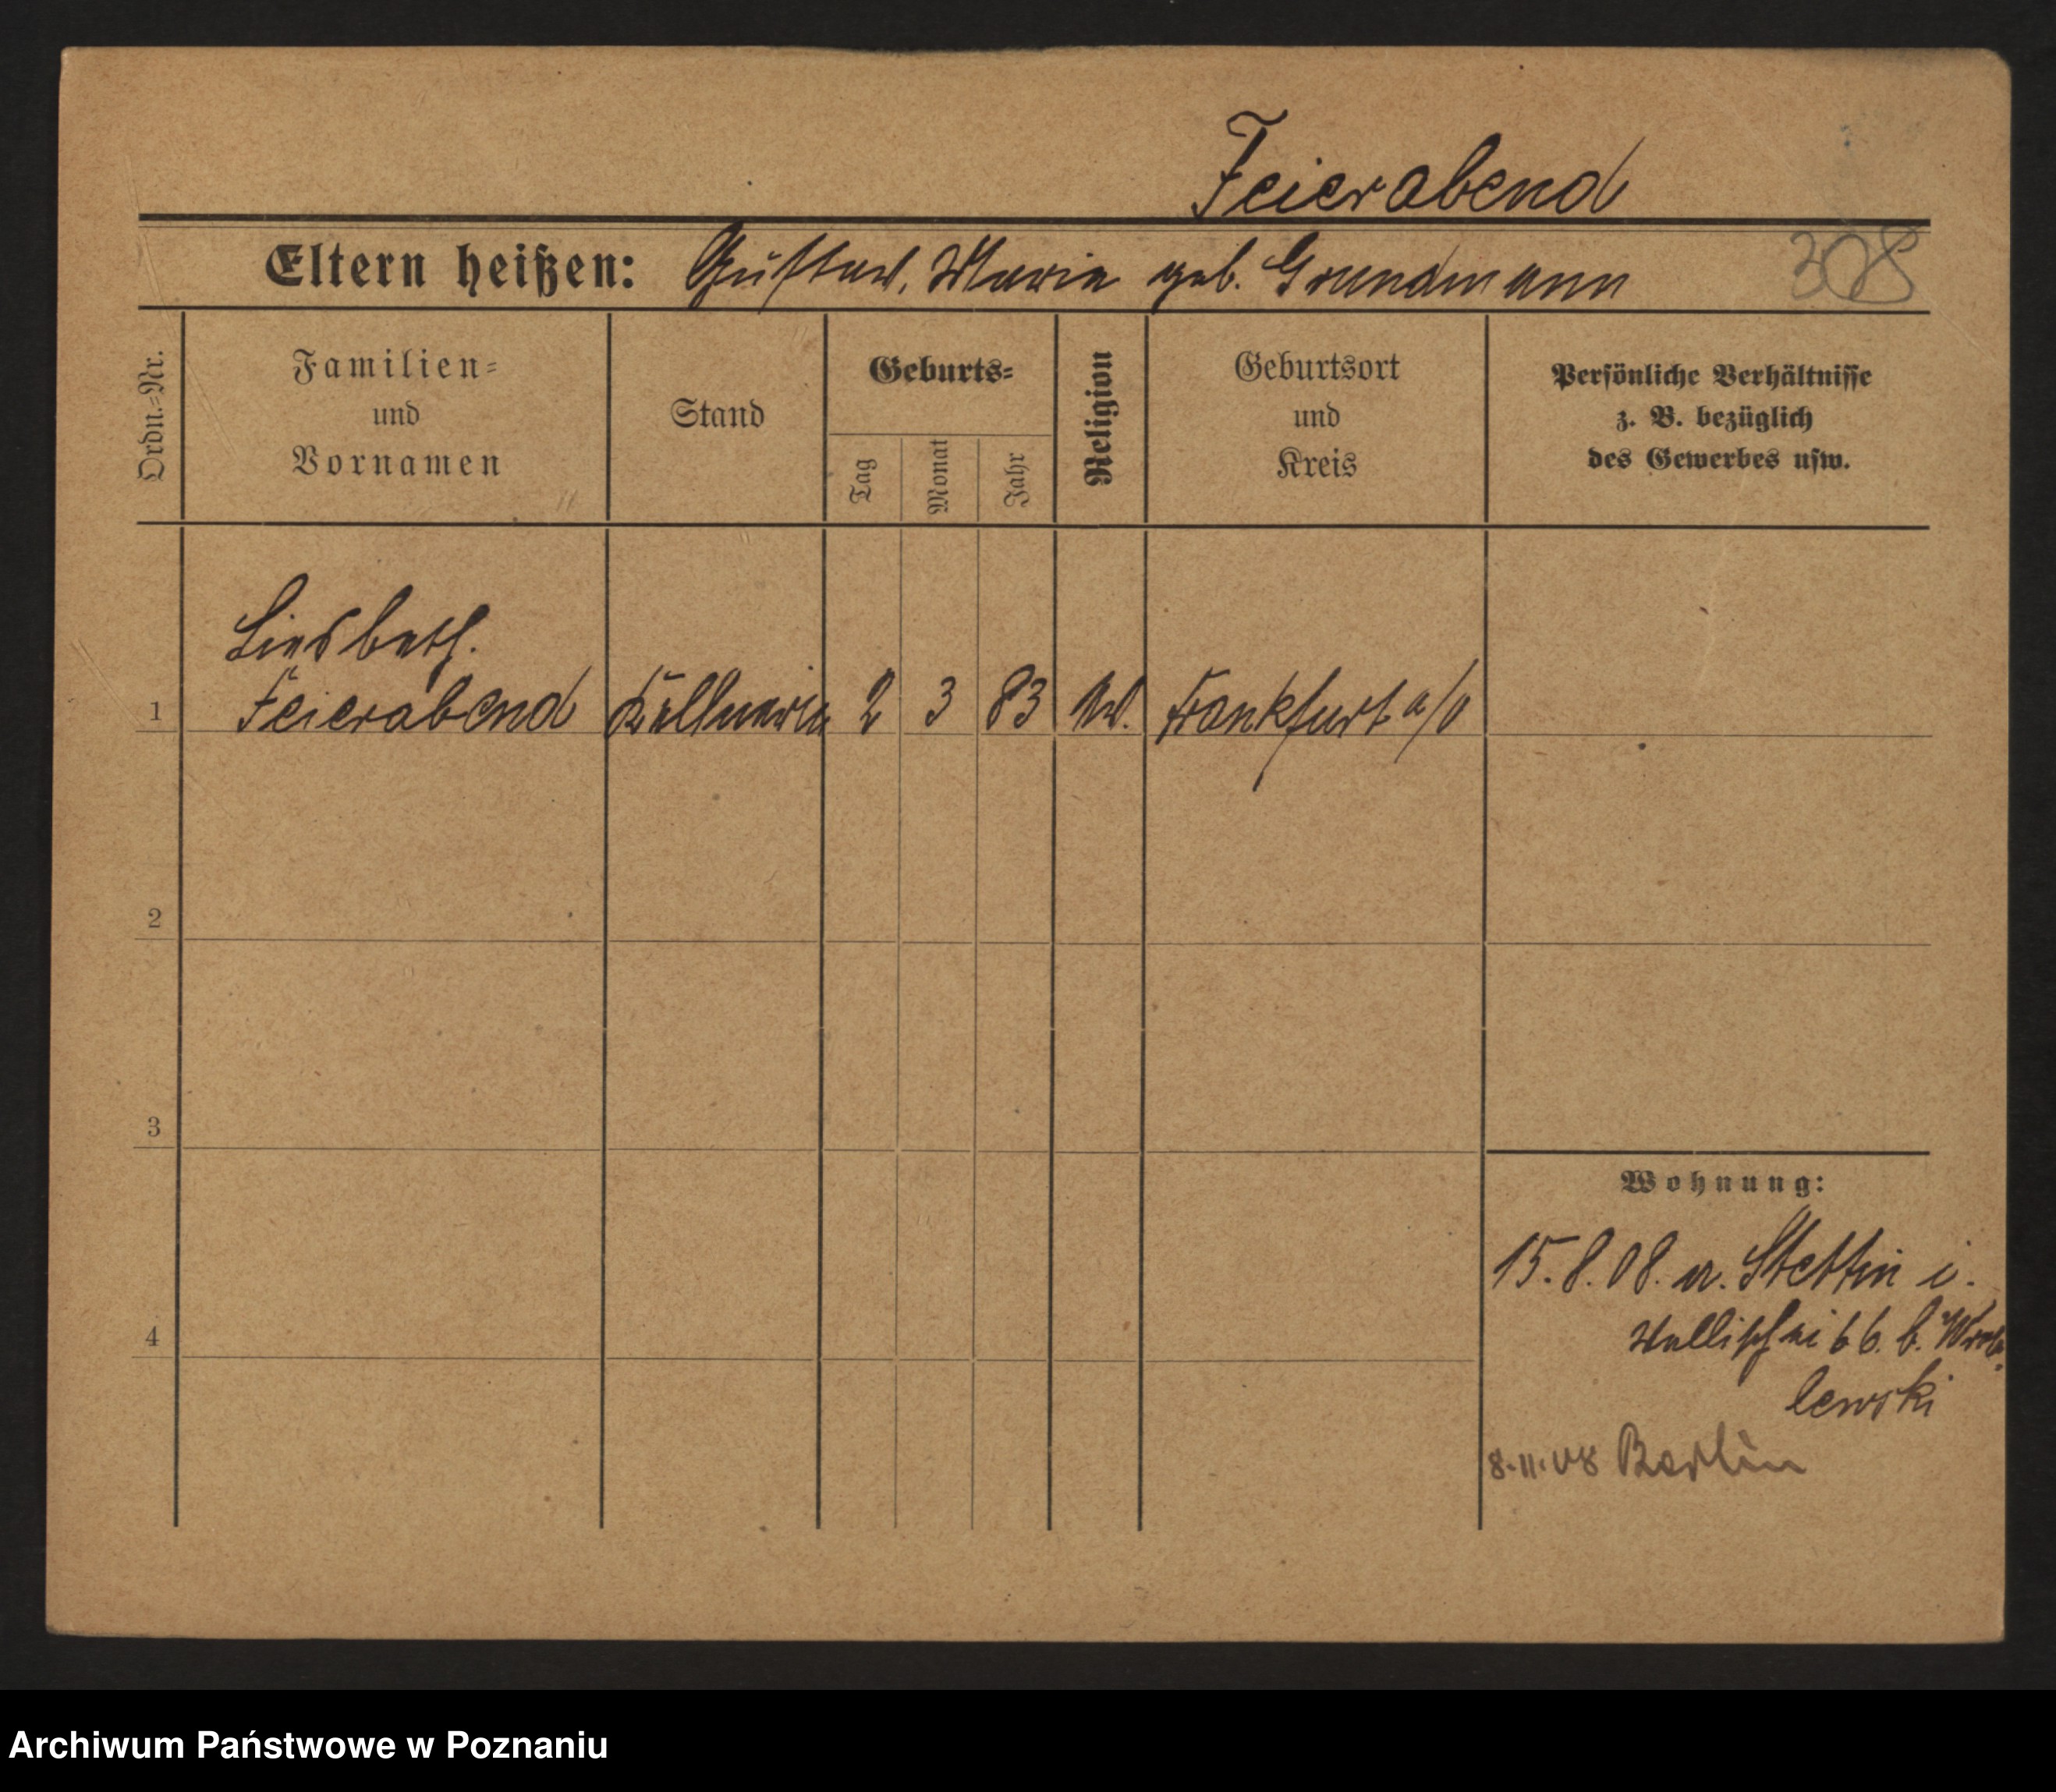 Feierabend
Eltern heißen: Gustav, Marie geb. Grundmann 308
Ordn.-Nr.
Familien-
und
Vornamen
Stand
Geburts-
Tag
Monat
Jahr
Religion
Geburtsort
und
Kreis
Persönliche Verhältnisse
z. B. bezüglich
des Gewerbes usw.
Liesbeth.
1 Feierabend Kellnerin 2 3 83 Frankfurt a/O
2
3
4
Wohnung:
15.8.08. a. Stettin i.
Wallischei 66. b. Wrob-
lewski
8.11.08 Berlin
Archiwum Państwowe w Poznaniu